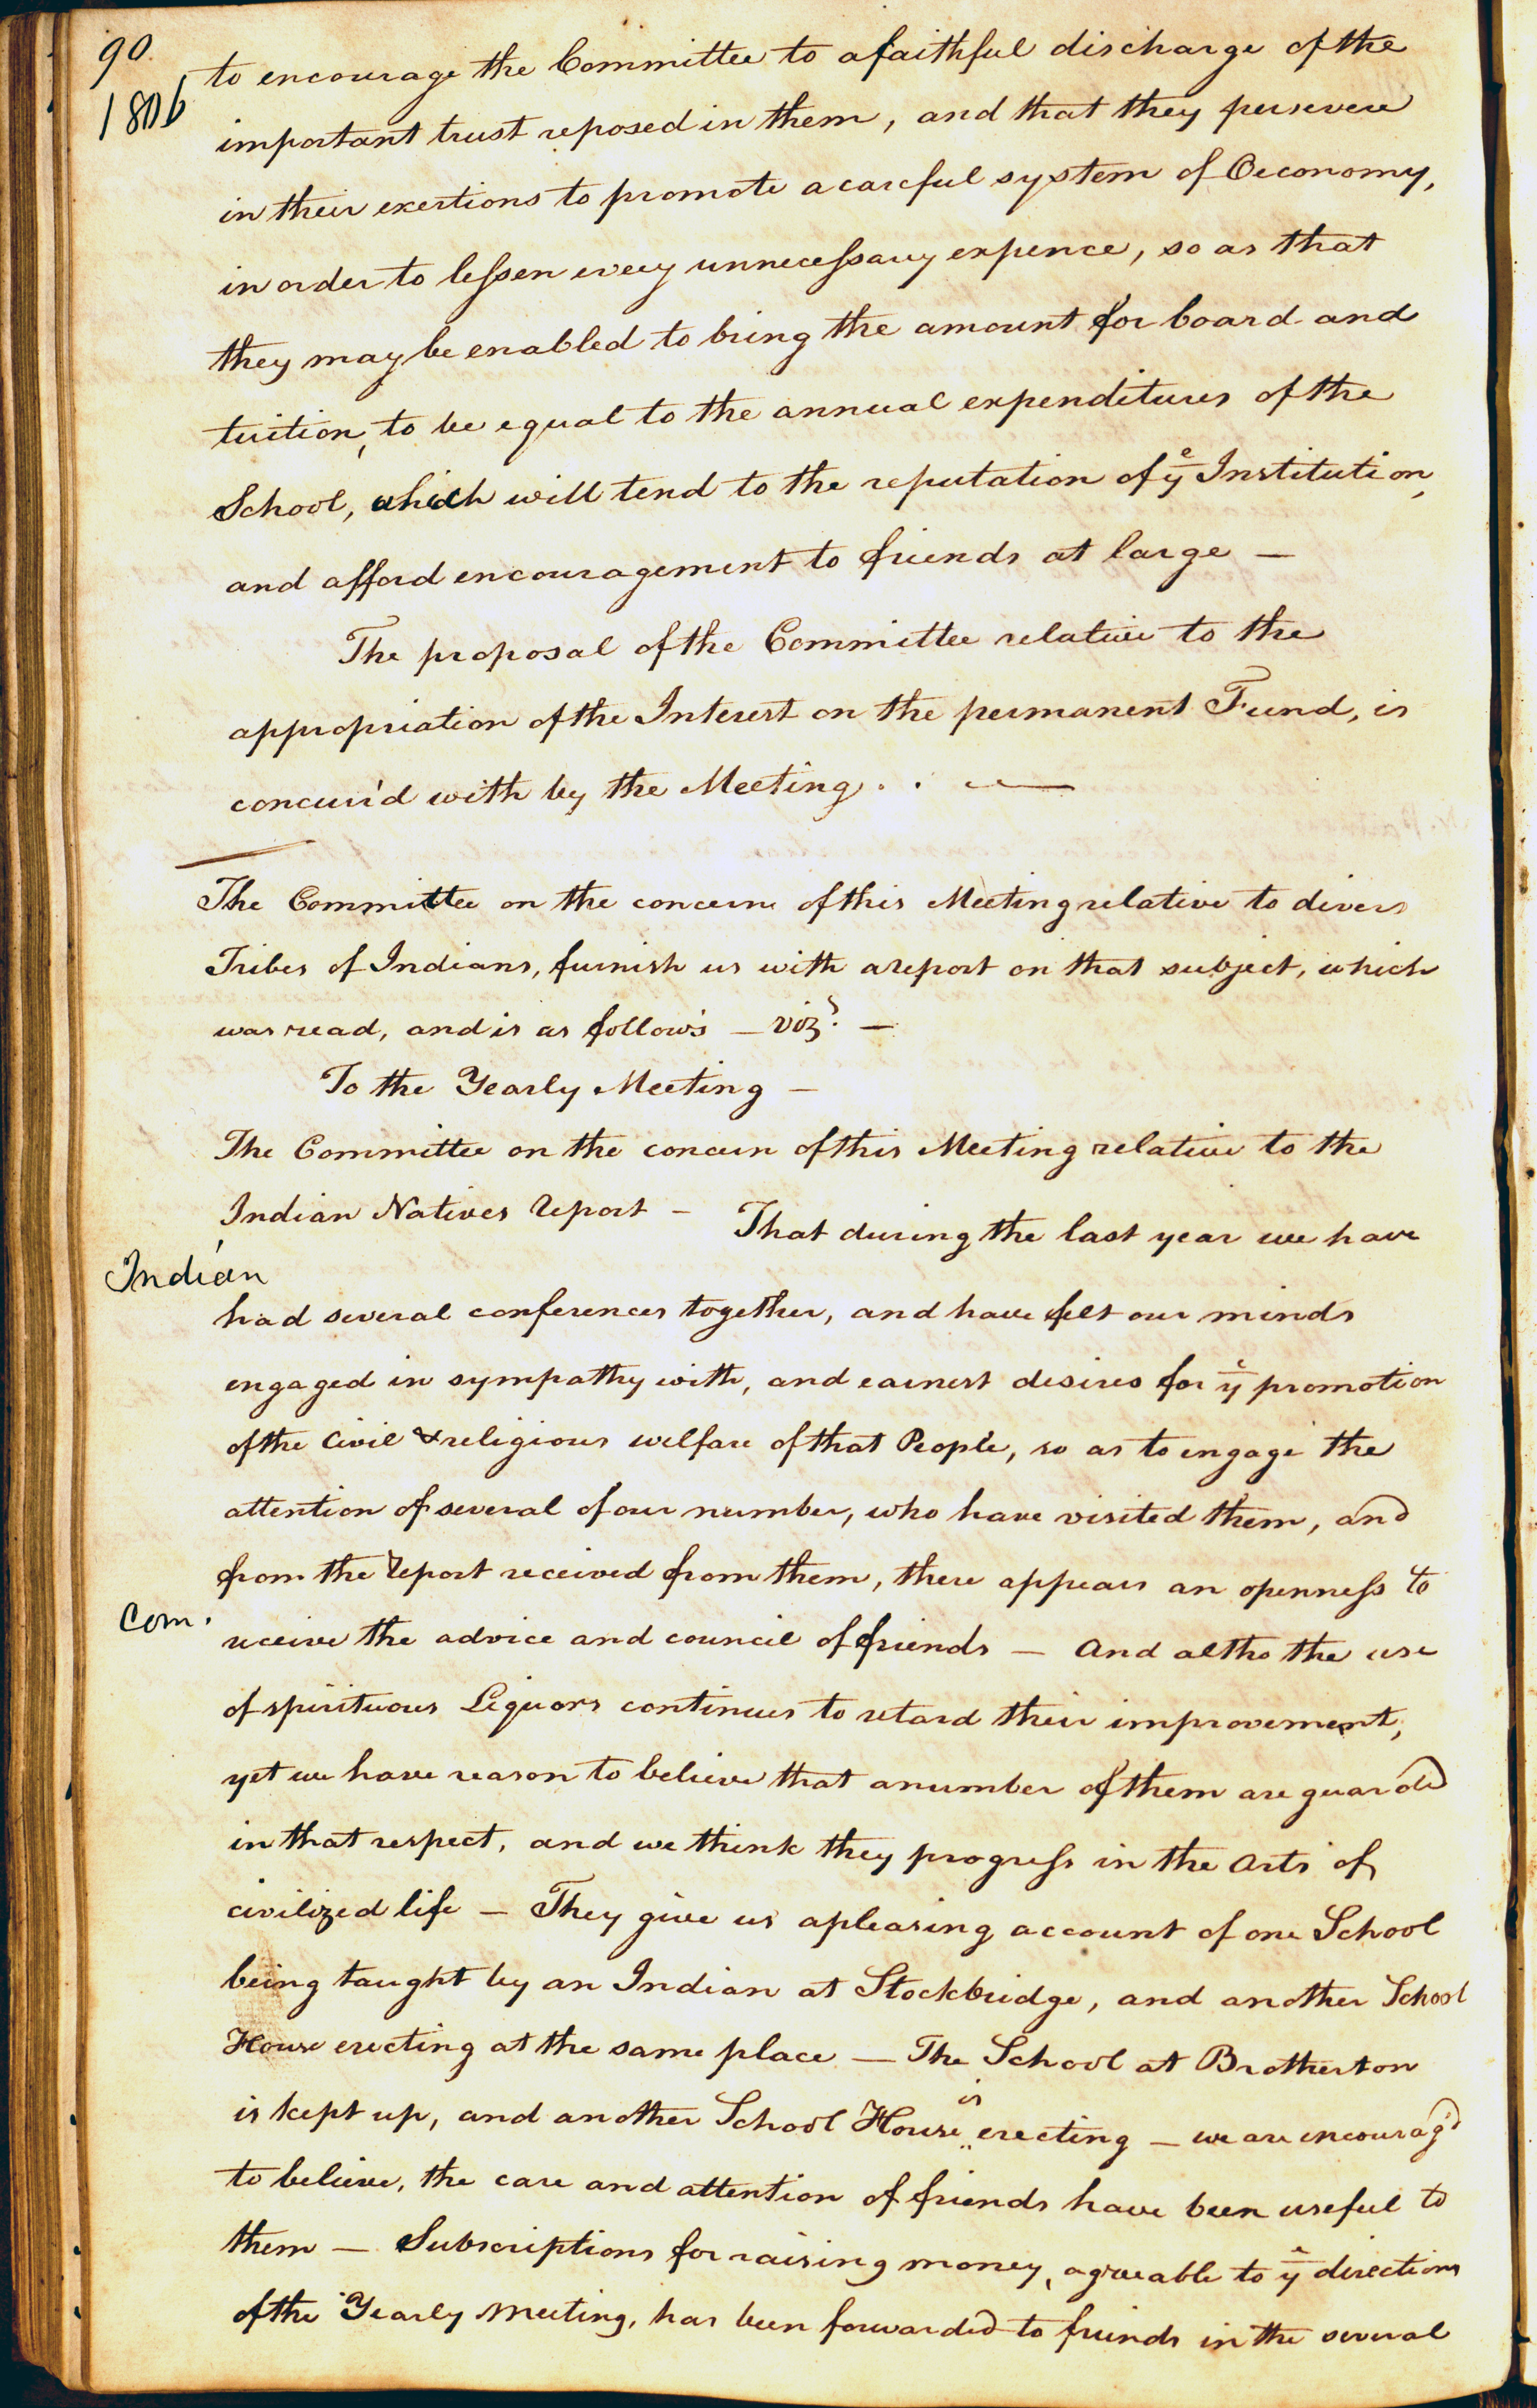 90.
1806
to encourage the Committee to a faithful discharge of the
important trust reposed in them, and that they persevere
in their exertions to promote a careful system of Oeconomy,
in order to lessen every unnecessary expence, so as that
they may be enabled to bring the amount for board and
tuition, to be equal to the annual expenditures of the
School, which will tend to the reputation of yᵉ Institution,
and afford encouragement to friends at large —
The proposal of the Committee relative to the
appropriation of the Interest on the permanent Fund, is
concurr'd with by the Meeting . . —
The Committee on the concern of this Meeting relative to divers
Tribes of Indians, furnish us with a report on that subject, which
was read, and is as follows — viz. —
To the Yearly Meeting —
The Committee on the concern of this Meeting relative to the
Indian Natives report — That during the last year we have
Indian
had several conferences together, and have felt our minds
engaged in sympathy with, and earnest desires for yᵉ promotion
of the Civil & religious welfare of that People, so as to engage the
attention of several of our number, who have visited them, and
from the report received from them, there appears an openness to
Com.
receive the advice and council of friends — And altho the use
of spirituous Liquors continues to retard their improvement,
yet we have reason to believe that a number of them are guarded
in that respect, and we think they progress in the Arts of
civilized life — They give us a pleasing account of one School
being taught by an Indian at Stockbridge, and another School
House erecting at the same place — The School at Brotherton
is kept up, and another School House is erecting — we are encourag'd
to believe, the care and attention of friends have been useful to
them — Subscriptions for raising money, agreeable to yᵉ directions
of the Yearly Meeting, has been forwarded to friends in the several